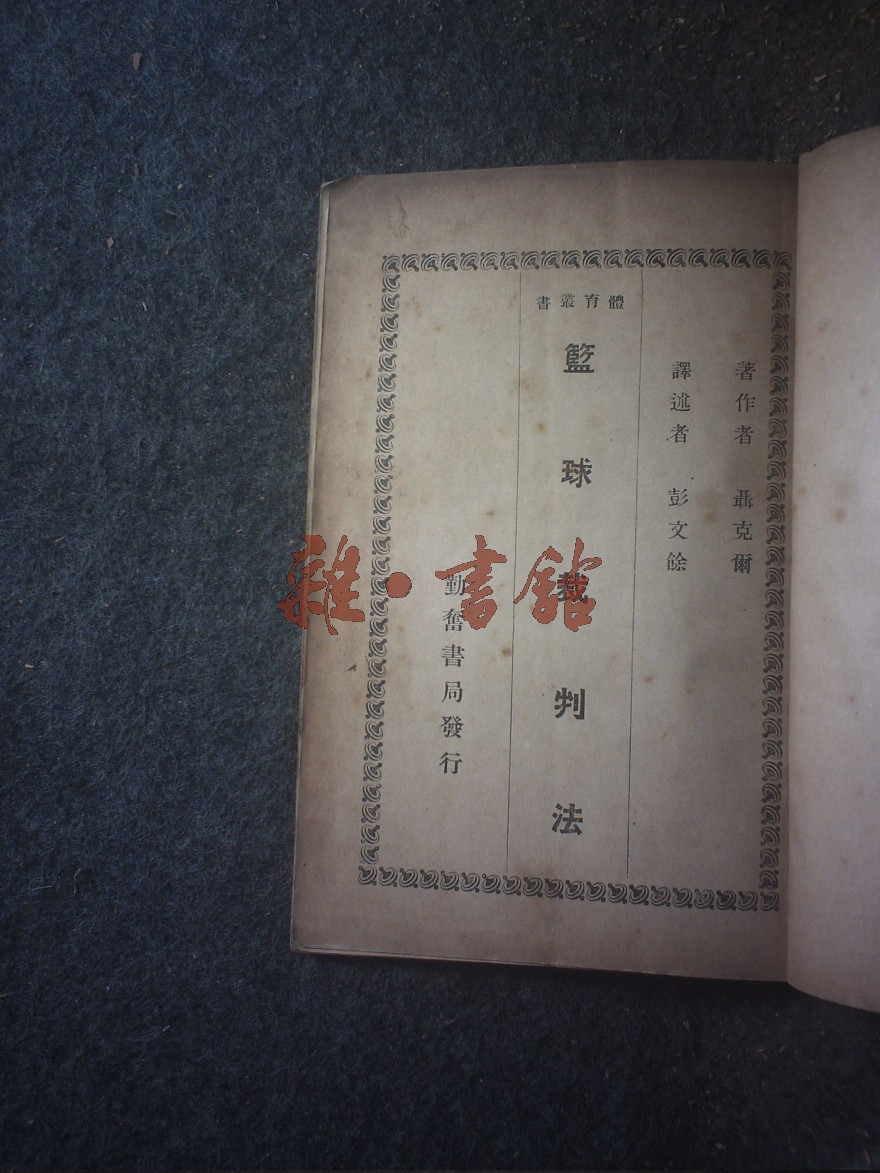 著作者 聶克爾
譯述者 彭文餘
體育叢書
籃球裁判法
勤奮書局發行
雜·書館